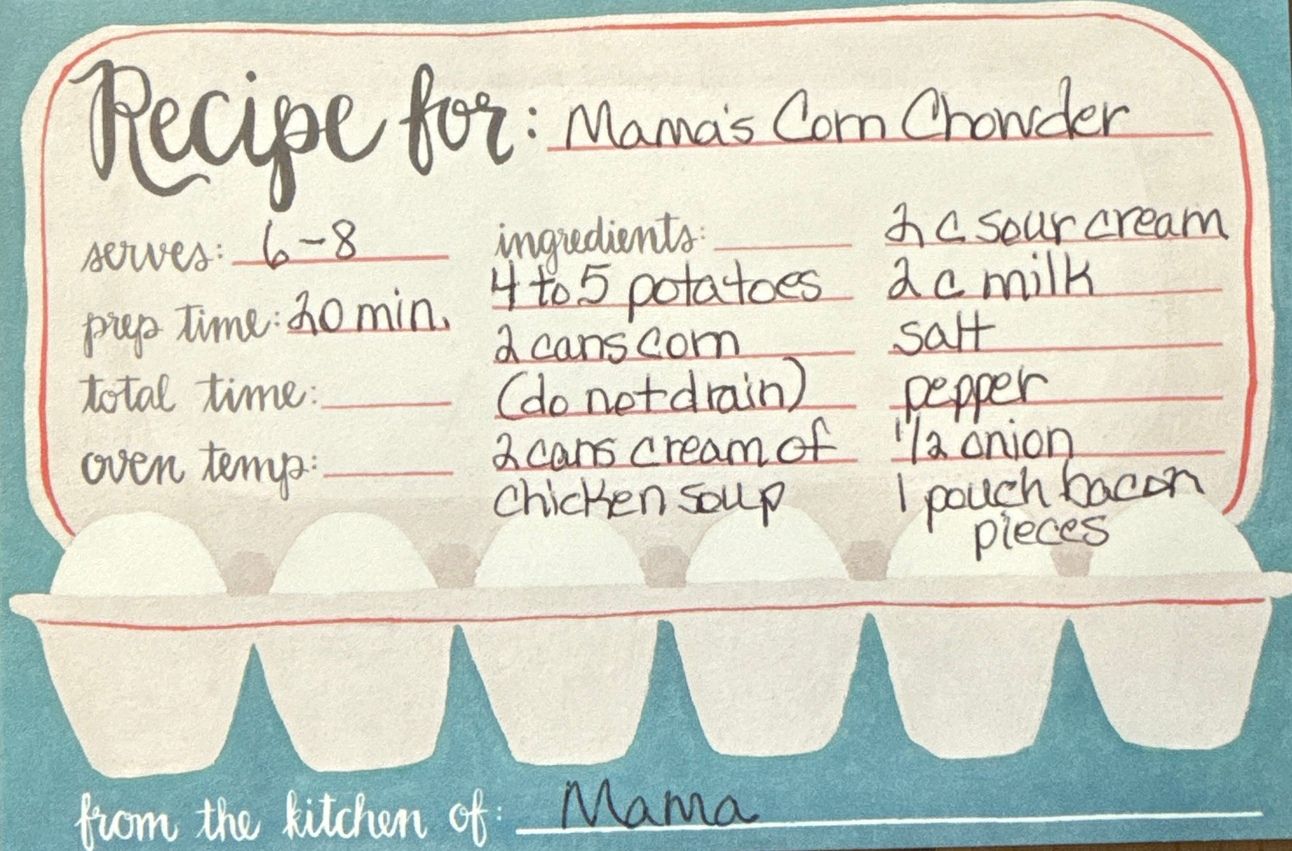 Recipe for: Mama's Corn Chowder
serves: 6-8
prep time: 20 min.
total time:
oven temp:
ingredients:
4 to 5 potatoes
2 cans corn
(do not drain)
2 cans cream of
chicken soup
2 c sour cream
2 c milk
salt
pepper
1/2 onion
1 pouch bacon
pieces
from the kitchen of: Mama